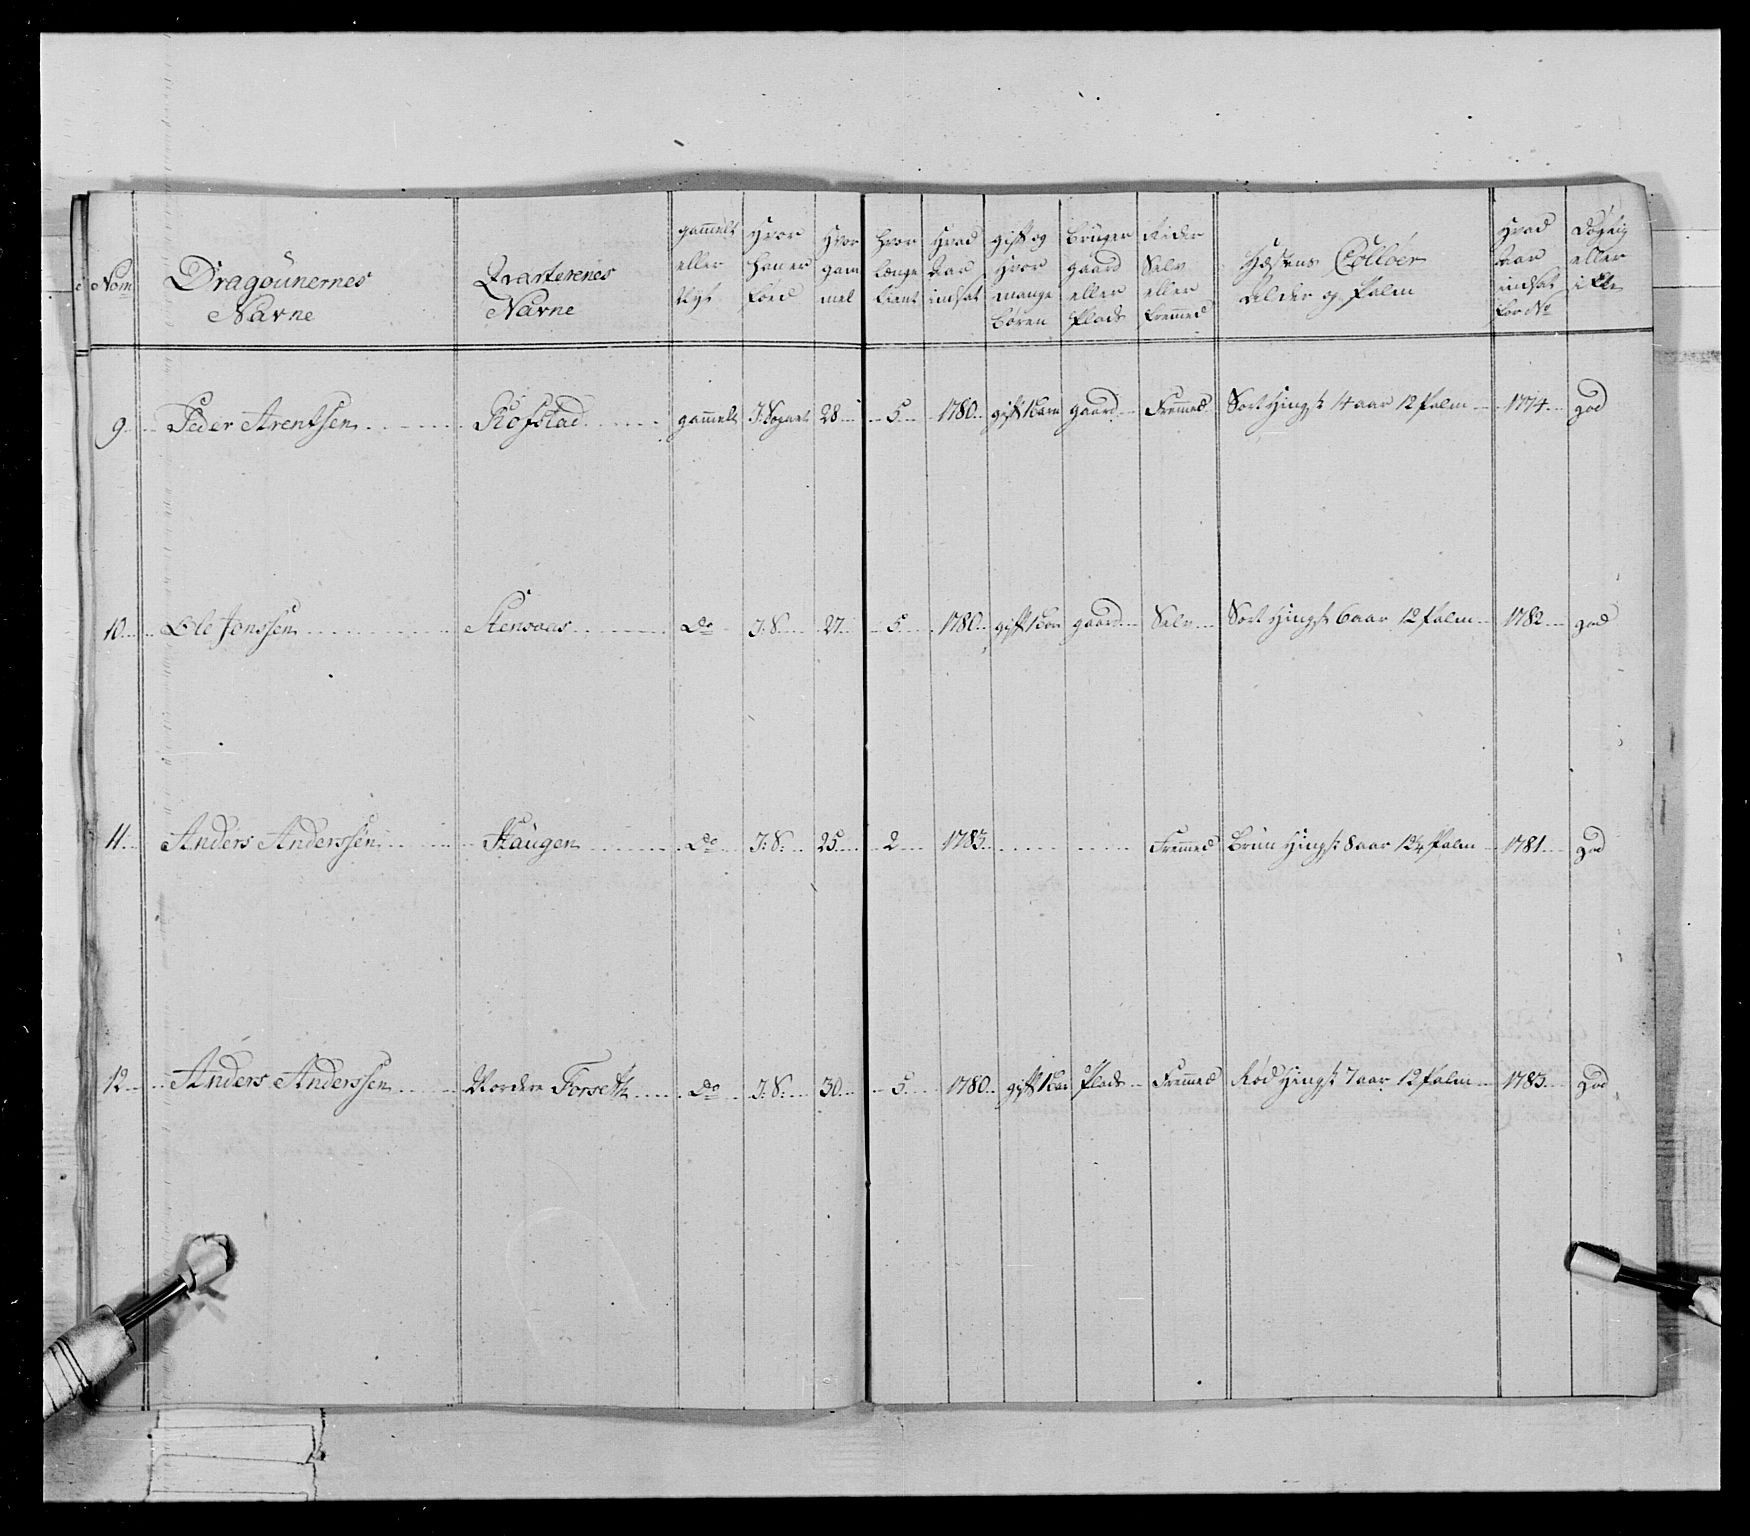 Nom | Dragounernes Navne | Qvarterenes Navne | gammelt eller Nyt | Hvor han er Fød | Hvor gam mel | hvor længe tient | Hvad Aar indsat | gift og Hvor mange Børen | Bruger gaard eller Plads | Rider Selv eller Fremmed | Hæstens ColloerÆlder og Palm | Hvad Aar indsat for No | Dögtig eller ikke
9 | Peder Arentsen | Hofstad | gammelt | I: Sognet | 28 | 5 | 1780 | gift 1 Barn | gaard | Fremmed | Sort Hingst 14 aar 12 Palm | 1774 | god
10 | Ole Jonssen | Stensaas | Do | I: S: | 27 | 5 | 1780 | gift 1 Bar | gaard | Selv | Sort Hingst 6 aar 12 Palm | 1782 | god
11 | Anders Anderssen | Haugen | Do | I: S: | 25 | 2 | 1783 | Fremmed | Brun Hingst 8 aar 12¼ Palm | 1781 | god
12 | Anders Anderssen | Nordre Forseth | Do | I: S: | 30 | 5 | 1780 | gift 1 Bar | Plads | Fremmed | Rød Hingst 7 aar 12 Palm | 1783 | god